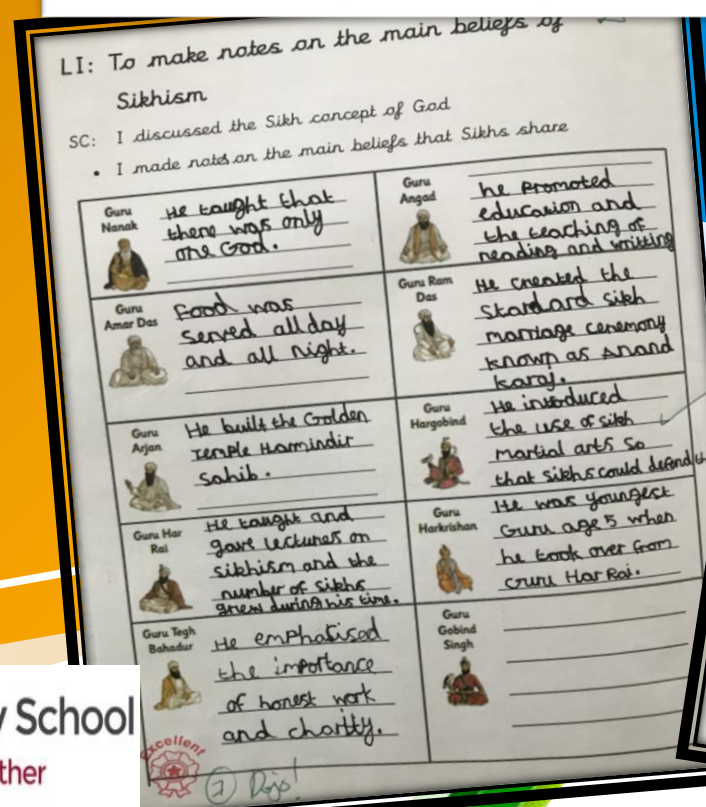 LI: To make notes on the main beliefs of
Sikhism
SC: I discussed the Sikh concept of God
• I made notes on the main beliefs that Sikhs share
Guru
Nanak
He taught that
there was only
one God.
Guru
Angad
he promoted
education and
the teaching of
reading and writting
Guru
Amar Das
Food was
served all day
and all night.
Guru Ram
Das
He created the
standard sikh
marriage ceremony
known as Anand
karaj.
Guru
Arjan
He built the Golden
Temple Hamindir
Sahib.
Guru
Hargobind
He introduced
the use of sikh
martial arts so
that sikhs could defend th
Guru Har
Rai
He taught and
gave lectures on
sikhism and the
number of sikhs
grew during his time.
Guru
Harkrishan
He was youngest
Guru age 5 when
he took over from
Guru Har Rai.
Guru Tegh
Bahadur
He emphatised
the importance
of honest work
and chartty.
Guru
Gobind
Singh
Excellent
7 Dojo!
y School
ther